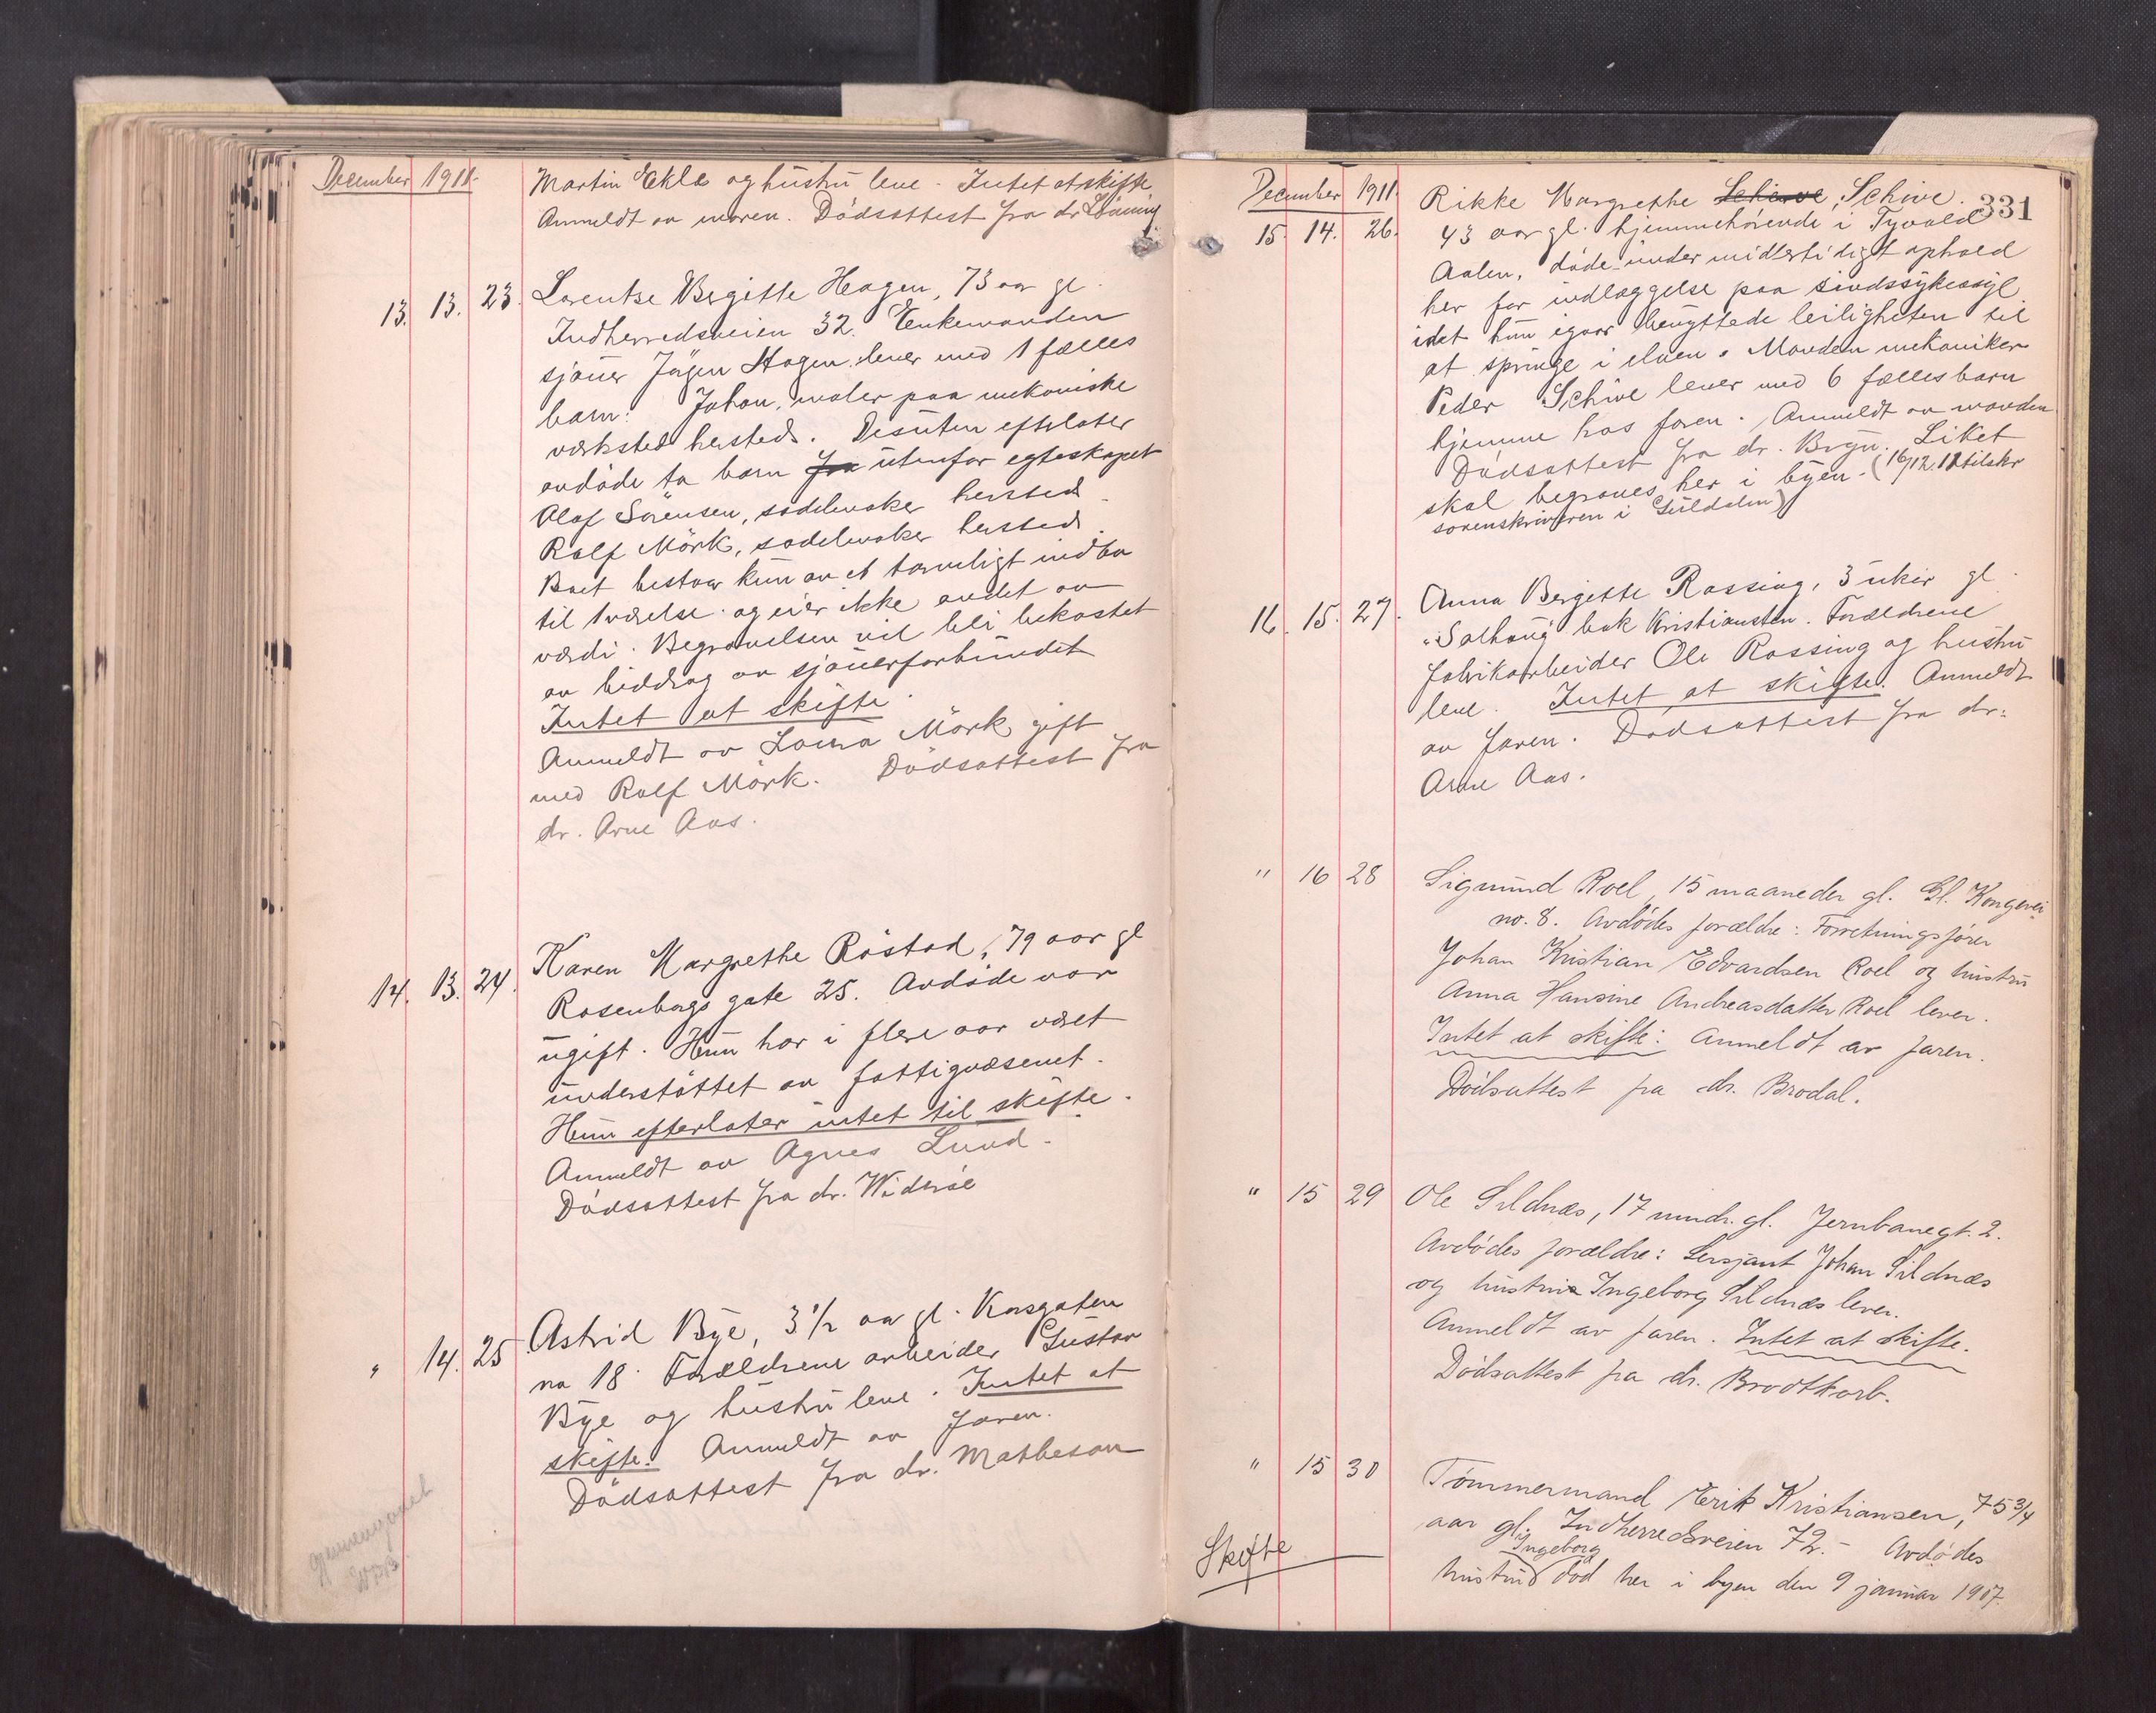 December 1911.
Martin Ekle og hustru leve. Intet at skifte
Anmeldt av moren. Dödsattest fra dr Lönning
13. 13. 23. Lorentse Bergitte Hagen, 73 aar gl.
Indherredsveien 32. Enkemanden
sjouer Jörgen Hagen lever med 1 fælles
barn: Johan, maler paa mekaniske
verksted hersteds. Desuten efterlater
avdöde to barn fra utenfor egteskapet
Olaf Sörensen, sadelmaker hersteds.
Rolf Mörk, sadelmaker hersteds.
Boet bestaar kun av et tarveligt indbo
til 1 værelse og eier ikke andet av
værdi. Begravelsen vil bli bekostet
av biddrag av sjouerforbundet
Intet at skifte.
Anmeldt av Laura Mörk gift
med Rolf Mörk. Dödsattest fra
dr. Arne Aas.
14. 13. 24. Karen Margrethe Röstad, 79 aar gl
Rosenborgs gate 25. Avdöde var
ugift. Hun har i flere aar været
understöttet av fattigvæsenet.
Hun efterlater intet til skifte.
Anmeldt av Agnes Lund.
Dödsattest fra dr. Wideröe
" 14. 25 Astrid Bye, 3 1/2 aar gl. Korsgaten
no 18. Forældrene arbeider Gustav
Bye og hustru leve. Intet at
skifte. Anmeldt av faren.
Dödsattest fra dr. Mathesou
Gjennemgaaet
December 1911.
331
15. 14. 26. Rikke Margrethe Schive, Schive.
43 aar gl. hjemmehörende i Tyvold
Aalen, döde under midlertidigt ophold
her for indlæggelse paa sindssykeasyl
idet hun igaar benyttede leiligheten til
at springe i elven. Manden mekaniker
Peder Schive lever med 6 fælles barn
hjemme hos faren. Anmeldt av manden
Dödsattest fra dr. Bryn. Liket
skal begraves her i byen. (16/12. 11 tilskr
sorenskriveren i Guldalen)
16. 15. 27. Anna Bergitte Rossing, 3 uker gl.
"Solhaug" bak Kristiansten. Forældrene
fabrikarbeider Ole Rossing og hustru
leve. Intet at skifte. Anmeldt
av faren. Dödsattest fra dr.
Arne Aas.
" 16 28 Sigmund Roel, 15 maaneder gl. Gl. Kongevei
no. 8. Avdödes forældre: Forretningsförer
Johan Kristian Edvardsen Roel og hustru
Anna Hansine Andreasdatter Roel lever.
Intet at skifte: Anmeldt av faren.
Dödsattest fra dr. Brodal.
" 15 29 Ole Sildnæs, 17 mndr. gl. Jernbanegt. 2.
Avdödes forældre: Sersjant Johan Sildnæs
og hustru Ingeborg Sildnæs lever.
Anmeldt av faren. Intet at skifte.
Dödsattest fra dr. Brodtkorb.
" 15 30 Tömmermand Erik Kristiansen, 75 3/4
aar gl. Indherredsveien 72. - Avdödes
Skifte
hustru Ingeborg död her i byen den 9 januar 1907.